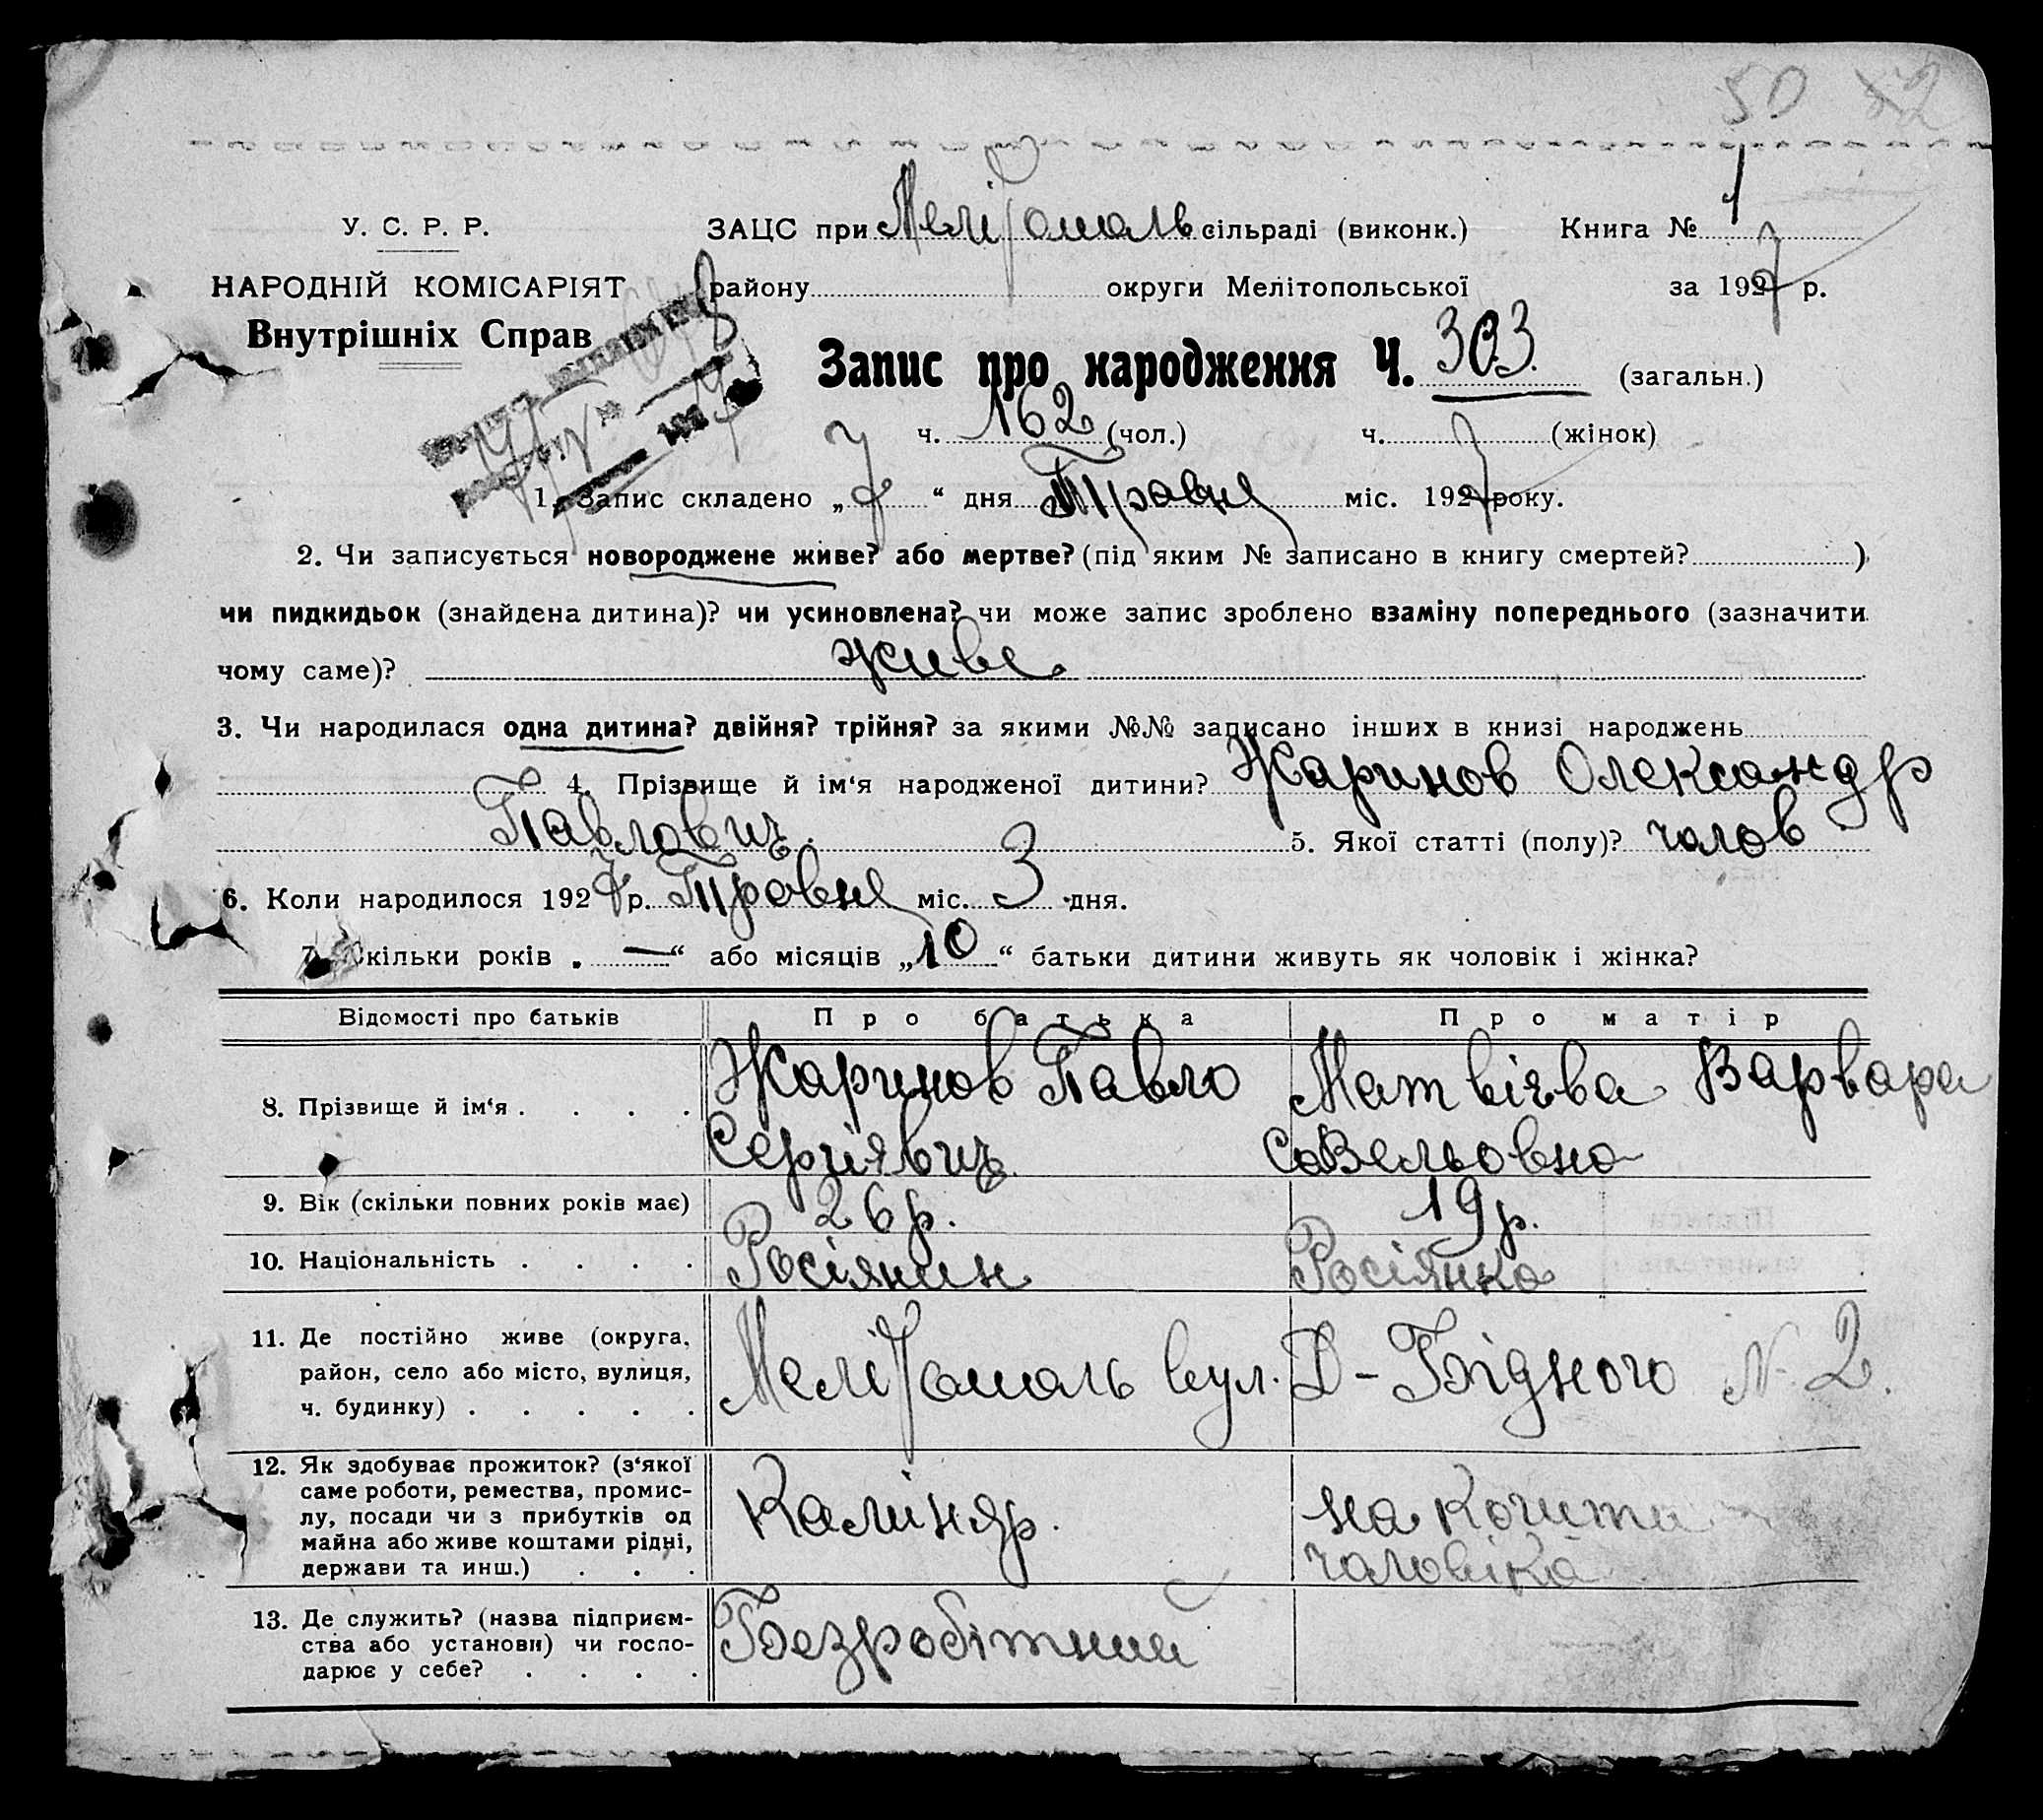 50 82
У. С. Р. Р.
ЗАЦС при Мелітополь сільраді (виконк.) Книга № 1
НАРОДНІЙ КОМІСАРІЯТ
району округи Мелітопольської за 1927 р.
Внутрішніх Справ
Запис про народження Ч. 303. (загальн.)
ч. 162 (чол.) ч. (жінок)
1. Запис складено „7“ дня Травня міс. 1927 року.
2. Чи записується новороджене живе? або мертве? (під яким № записано в книгу смертей? )
чи пидкидьок (знайдена дитина)? чи усиновлена? чи може запис зроблено взаміну попереднього (зазначити
чому саме)? живе
3. Чи народилася одна дитина? двійня? трійня? за якими №№ записано інших в книзі народжень
4. Прізвище й ім‘я народженої дитини? Жаринов Олександр
Павлович. 5. Якої статті (полу)? чолов
6. Коли народилося 1927 р. Травня міс. 3 дня.
7. Скільки років „—“ або місяців „10“ батьки дитини живуть як чоловік і жінка?
Відомості про батьків Про батька Про матір
8. Прізвище й ім‘я . . . . Жаринов Павло Сергієвич. Матвієва Варвара Савельовна
9. Вік (скільки повних років має) 26 р. 19 р.
10. Національність . . . . Росіянин Росіянка
11. Де постійно живе (округа,
район, село або місто, вулиця,
ч. будинку) . . . . .
Мелітополь вул. Д-Бідного № 2.
12. Як здобуває прожиток? (з‘якої
саме роботи, ремества, промис-
лу, посади чи з прибутків од
майна або живе коштами рідні,
держави та инш.) . . .
Каміняр.
на кошти
чоловіка
13. Де служить? (назва підприєм-
ства або установи) чи госпо-
дарює у себе? . . . .
Безробітний